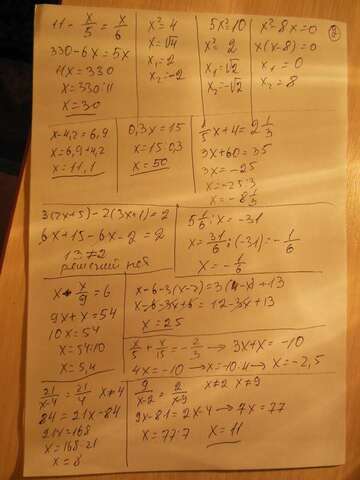 11 - x/5 = x/6
330-6x = 5x
11x = 330
x=330:11
x=30
x²=4
x=√4
x₁=2
x₂=-2
5x²=10
x²=2
x₁=√2
x₂=-√2
x²-8x=0
x(x-8)=0
x₁=0
x₂=8
x-4,2=6,9
x=6,9+4,2
x=11,1
0,3x=15
x=15:0,3
x=50
1/5 x+4=2 1/3
3x+60=35
3x=-25
x=-25:3
x=-8 1/3
3(2x+5)-2(3x+1)=2
6x+15-6x-2=2
13≠2
решений нет
5 1/6 : x = -31
x = 31/6 : (-31) = - 1/6
x = - 1/6
x + x/9 = 6
9x+x=54
10x=54
x=54:10
x=5,4
x-6-3(x-2)=3(4-x)+13
x-6-3x+6=12-3x+13
x=25
x/5 + x/15 = - 2/3 → 3x+x=-10
4x=-10 → x=-10:4 → x=-2,5
21/x-4 = 21/4 x≠4
84=21x-84
21x=168
x=168:21
x=8
9/x-2 = 2/x-9 x≠2 x≠9
9x-81=2x-4 → 7x=77
x=77:7 x=11